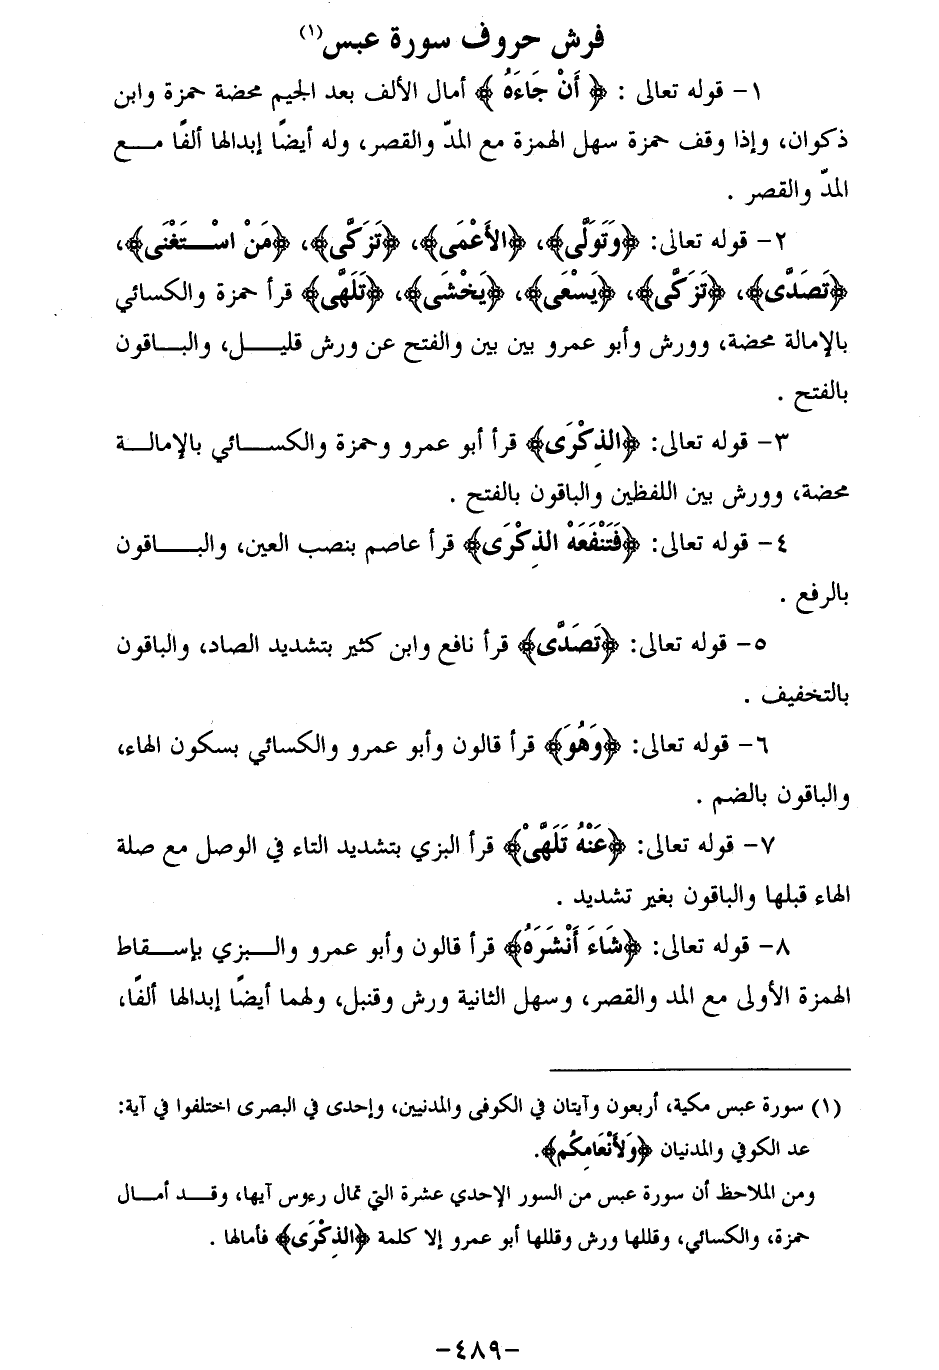 فرش حروف سورة عبس(١)
١- قوله تعالى : ﴿ أَنْ جَاءَهُ ﴾ أمال الألف بعد الجيم محضة حمزة وابن
ذكوان، وإذا وقف حمزة سهل الهمزة مع المدّ والقصر، وله أيضًا إبدالها ألفًا مع
المدّ والقصر .
٢- قوله تعالى: ﴿وَتَوَلَّى﴾، ﴿الأَعْمَى﴾، ﴿تَزَكَّى﴾، ﴿مَنْ اسْتَغْنَى﴾،
﴿تَصَدَّى﴾، ﴿تَزَكَّى﴾، ﴿يَسْعَى﴾، ﴿يَخْشَى﴾، ﴿تَلَهَّى﴾ قرأ حمزة والكسائي
بالإمالة محضة، وورش وأبو عمرو بين بين والفتح عن ورش قليل، والباقون
بالفتح .
٣- قوله تعالى: ﴿الذِكْرَى﴾ قرأ أبو عمرو وحمزة والكسائي بالإمالة
محضة، وورش بين اللفظين والباقون بالفتح .
٤- قوله تعالى: ﴿فَتَنْفَعَهْ الذِكْرَى﴾ قرأ عاصم بنصب العين، والباقون
بالرفع .
٥- قوله تعالى: ﴿تَصَدَّى﴾ قرأ نافع وابن كثير بتشديد الصاد، والباقون
بالتخفيف .
٦- قوله تعالى: ﴿وَهُوَ﴾ قرأ قالون وأبو عمرو والكسائي بسكون الهاء،
والباقون بالضم .
٧- قوله تعالى: ﴿عَنْهُ تَلَهَّىْ﴾ قرأ البزي بتشديد التاء في الوصل مع صلة
الهاء قبلها والباقون بغير تشديد .
٨- قوله تعالى: ﴿شَاءَ أَنْشَرَهُ﴾ قرأ قالون وأبو عمرو والبزي بإسقاط
الهمزة الأولى مع المد والقصر، وسهل الثانية ورش وقنبل، ولهما أيضًا إبدالها ألفًا،
(١) سورة عبس مكية، أربعون وآيتان في الكوفى والمدنيين، وإحدى في البصرى اختلفوا في آية:
عد الكوفي والمدنيان ﴿وَلأَنْعَامِكُم﴾.
ومن الملاحظ أن سورة عبس من السور الإحدي عشرة التي تمال رءوس آيها، وقد أمال
حمزة، والكسائي، وقللها ورش وقللها أبو عمرو إلا كلمة ﴿الذِكْرَى﴾ فأمالها .
-٤٨٩-